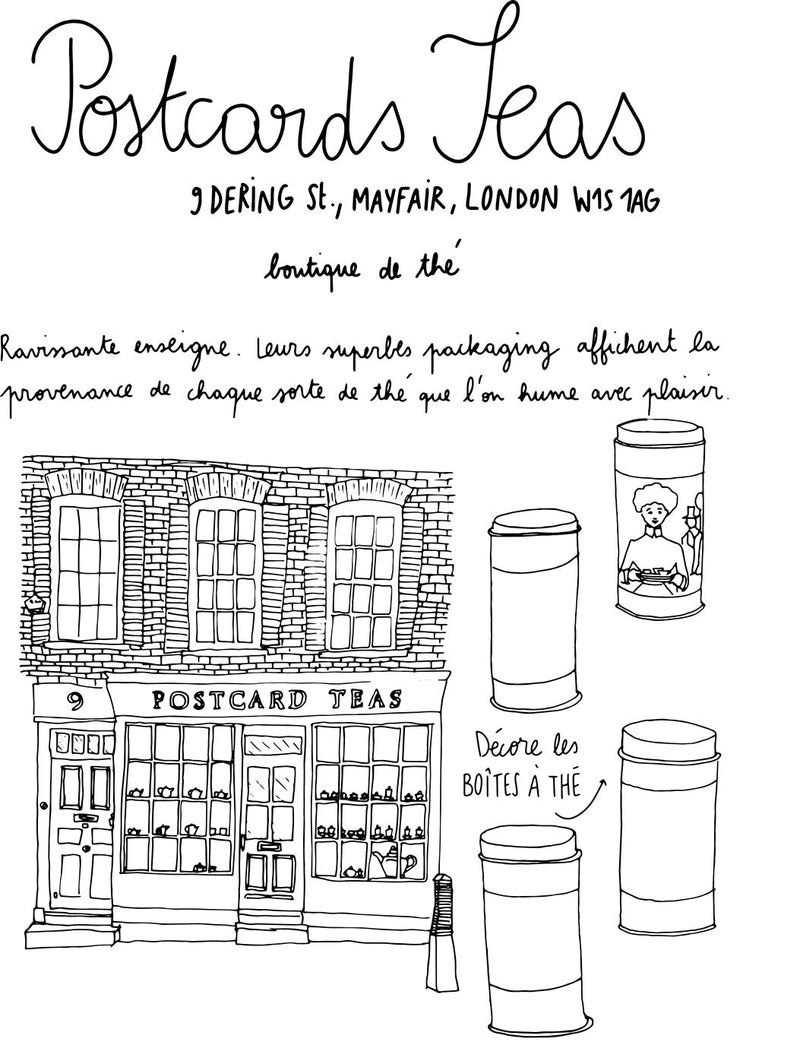 Postcards Teas
9 DERING St., MAYFAIR, LONDON W1S 1AG
boutique de thé
Ravissante enseigne. Leurs superbes packaging affichent la
provenance de chaque sorte de thé que l'on hume avec plaisir.
9 POSTCARD TEAS
Décore les
BOÎTES À THÉ